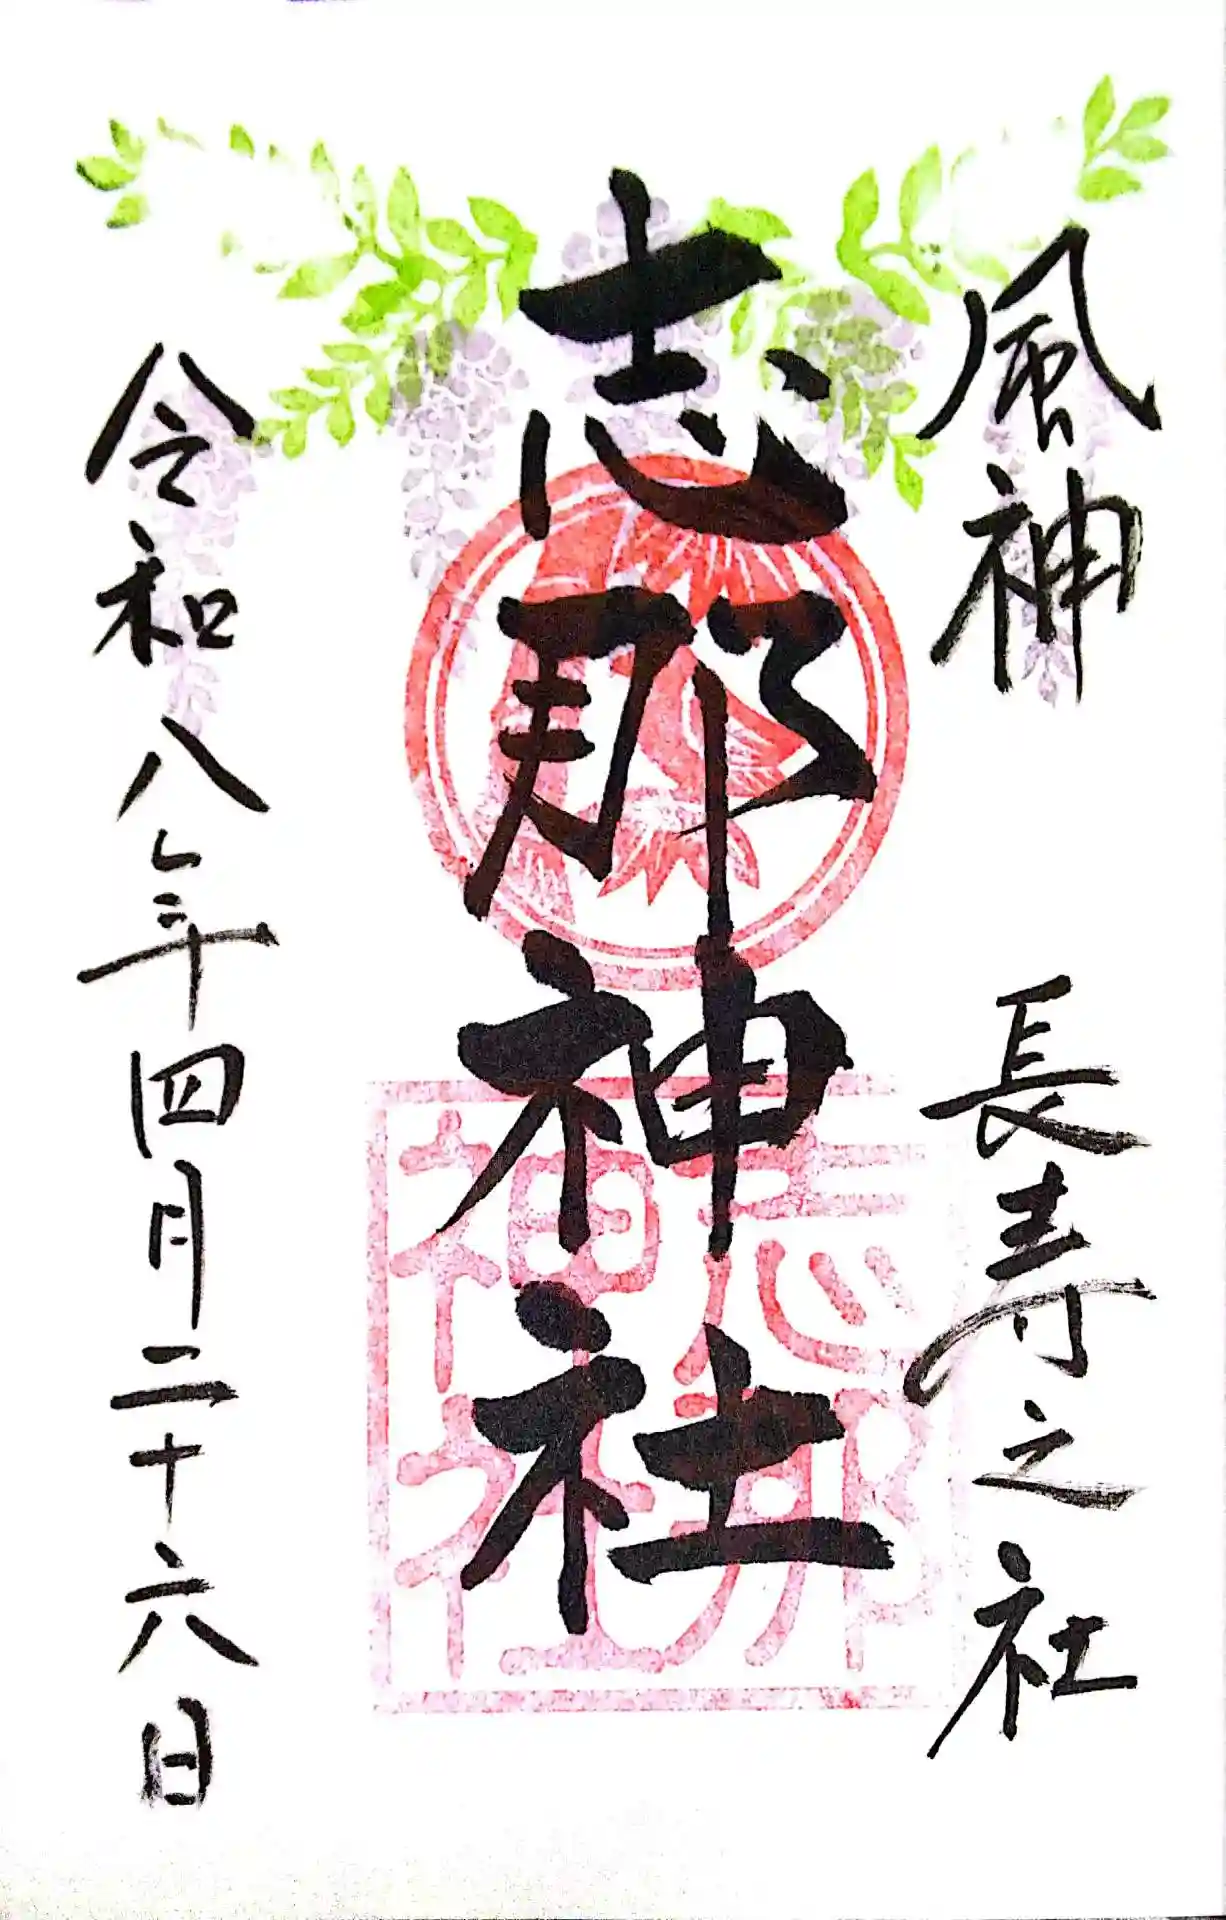 風神
長寿之社
志那神社
志那神社
令和八年四月二十六日